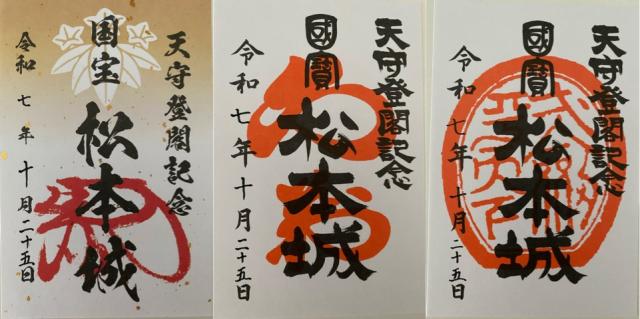 天守登閣記念
国宝
松本城
令和七年十月二十五日
天守登閣記念
國寶
松本城
令和七年十月二十五日
天守登閣記念
國寶
松本城
令和七年十月二十五日